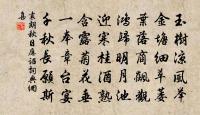 玉樹涼風舉
金塘細草萎
葉落商飆觀
鴻歸明月池
迎寒桂酒熟
含露菊花垂
一奉章台宴
千秋長願斯
袁朗秋日應詔詞典網
集